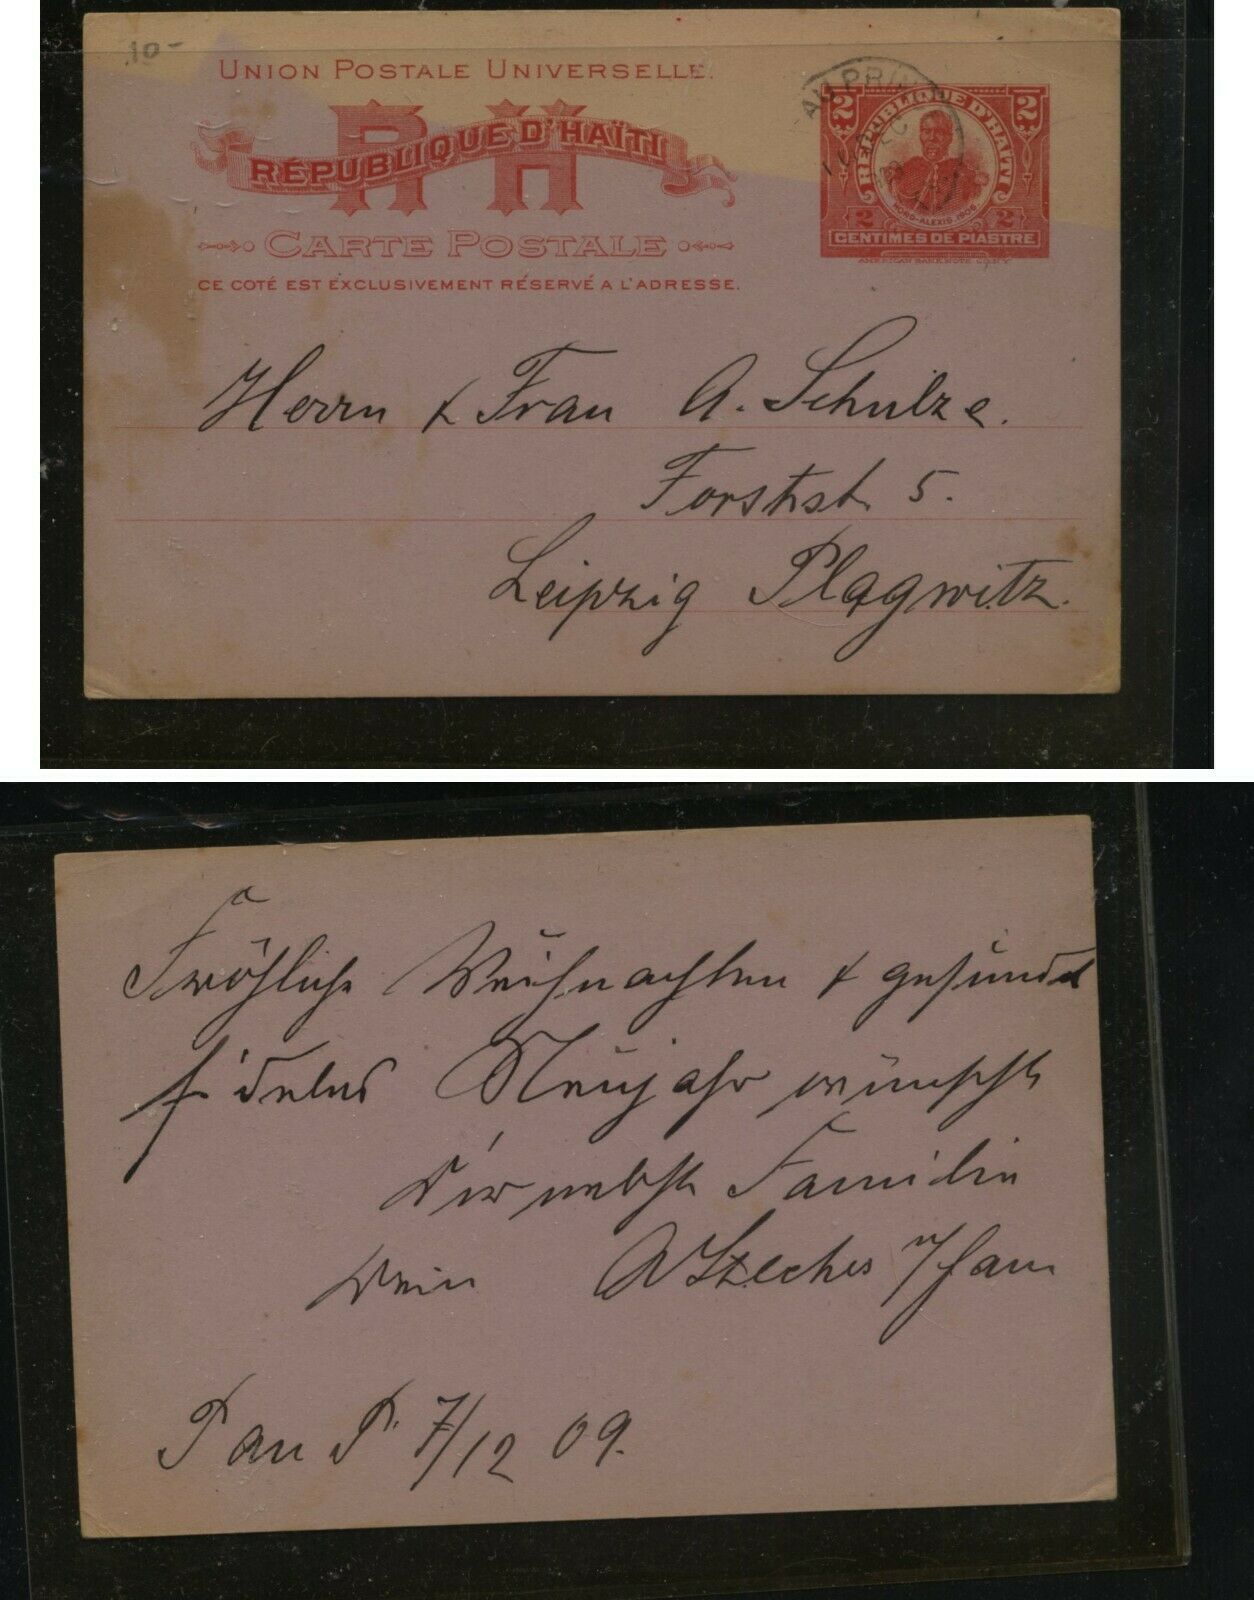 10-
UNION POSTALE UNIVERSELLE.
RH
RÉPUBLIQUE D'HAÏTI
CARTE POSTALE
CE COTÉ EST EXCLUSIVEMENT RÉSERVÉ A L'ADRESSE.
AU PRIN
2 2
REPUBLIQUE D'HAITI
NORD-ALEXIS.1905
2 2
CENTIMES DE PIASTRE
AMERICAN BANK NOTE CO. N.Y.
Herrn & Frau A. Schulze.
Forstst. 5.
Leipzig Plagwitz.
Fröhliche Weihnachten & gesundes
fideles Neujahr wünscht
Dir nebst Familie
Dein
P au P. 7/12 09.